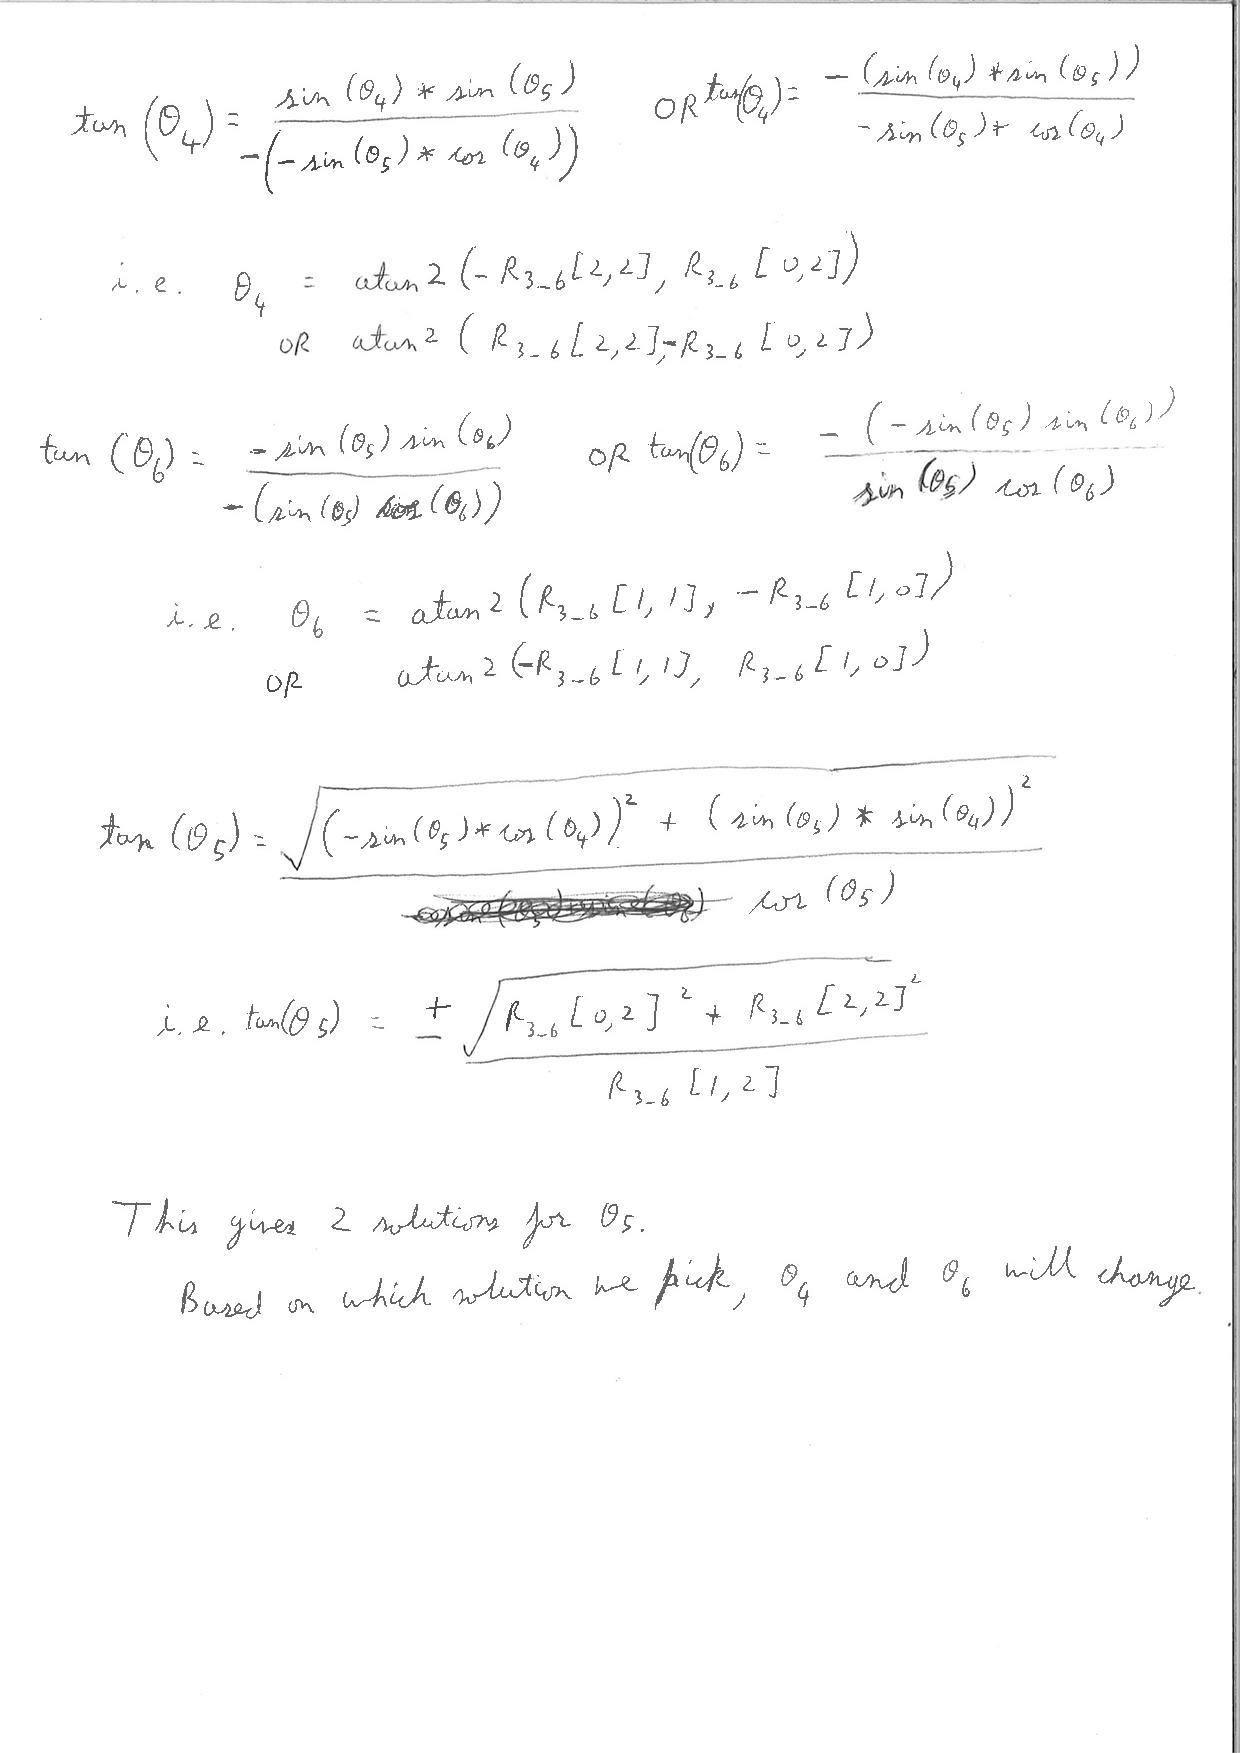 tan(θ₄) = sin(θ₄) * sin(θ₅) / -(-sin(θ₅) * cos(θ₄)) OR tan(θ₄) = -(sin(θ₄) * sin(θ₅)) / -sin(θ₅) * cos(θ₄)
i.e. θ₄ = atan2(-R₃₋₆[2,2], R₃₋₆[0,2])
OR atan2(R₃₋₆[2,2], -R₃₋₆[0,2])
tan(θ₆) = -sin(θ₅) sin(θ₆) / -(sin(θ₅) cos(θ₆)) OR tan(θ₆) = -(-sin(θ₅) sin(θ₆)) / sin(θ₅) cos(θ₆)
i.e. θ₆ = atan2(R₃₋₆[1,1], -R₃₋₆[1,0])
OR atan2(-R₃₋₆[1,1], R₃₋₆[1,0])
tan(θ₅) = √((-sin(θ₅) * cos(θ₄))² + (sin(θ₅) * sin(θ₄))²) / cos(θ₅)
i.e. tan(θ₅) = ± √(R₃₋₆[0,2]² + R₃₋₆[2,2]²) / R₃₋₆[1,2]
This gives 2 solutions for θ₅.
Based on which solution we pick, θ₄ and θ₆ will change.